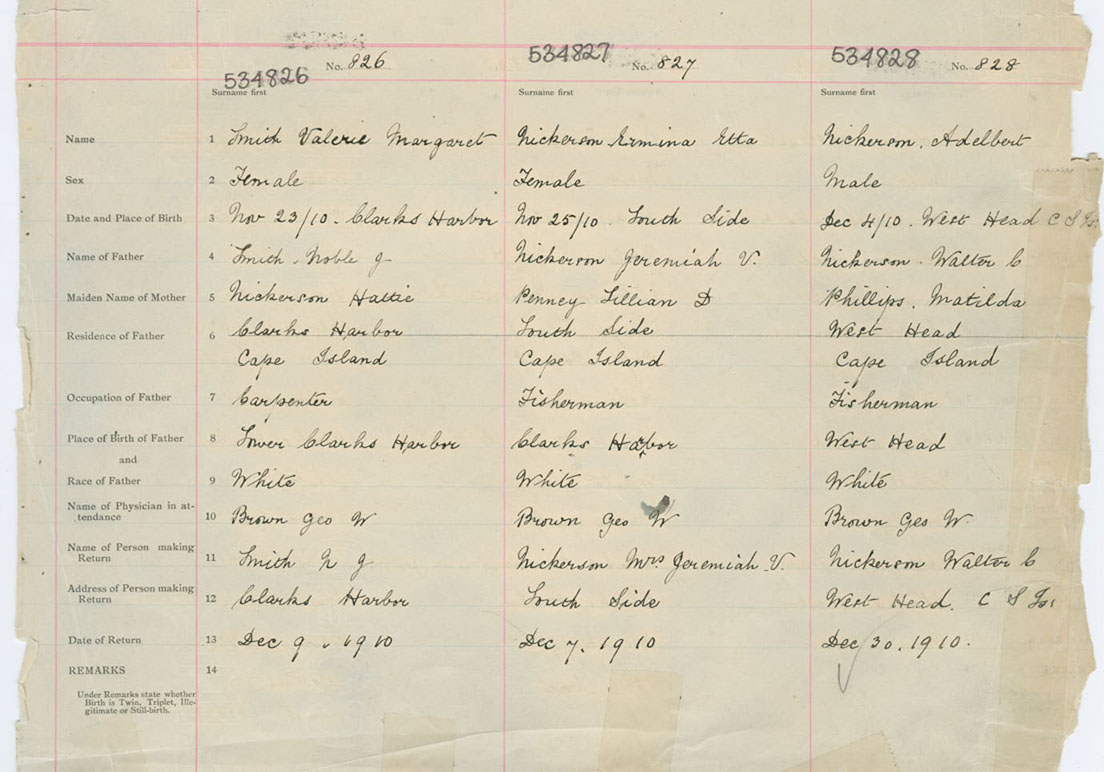 534826 No. 826 534827 No. 827 534828 No. 828
Surname first Surname first Surname first
Name 1 Smith Valerie Margaret Nickerson Ermina Etta Nickerson, Adelbert
Sex 2 Female Female Male
Date and Place of Birth 3 Nov 23/10 - Clarks Harbor Nov 25/10 . South Side Dec 4/10 . West Head C S Is.
Name of Father 4 Smith . Noble J Nickerson Jeremiah V. Nickerson . Walter C
Maiden Name of Mother 5 Nickerson Hattie Penney Lillian D Phillips, Matilda
Residence of Father 6 Clarks Harbor South Side West Head
Cape Island Cape Island Cape Island
Occupation of Father 7 Carpenter Fisherman Fisherman
Place of Birth of Father 8 Lower Clarks Harbor Clarks Harbor West Head
and
Race of Father 9 White White White
Name of Physician in at-
tendance 10 Brown Geo W Brown Geo W Brown Geo W.
Name of Person making
Return 11 Smith N J Nickerson Mrs Jeremiah V. Nickerson Walter C
Address of Person making
Return 12 Clarks Harbor South Side West Head, C S Is.
Date of Return 13 Dec 9, 1910 Dec 7, 1910 Dec 30, 1910.
REMARKS 14
Under Remarks state whether
Birth is Twin, Triplet, Ille-
gitimate or Still-birth.